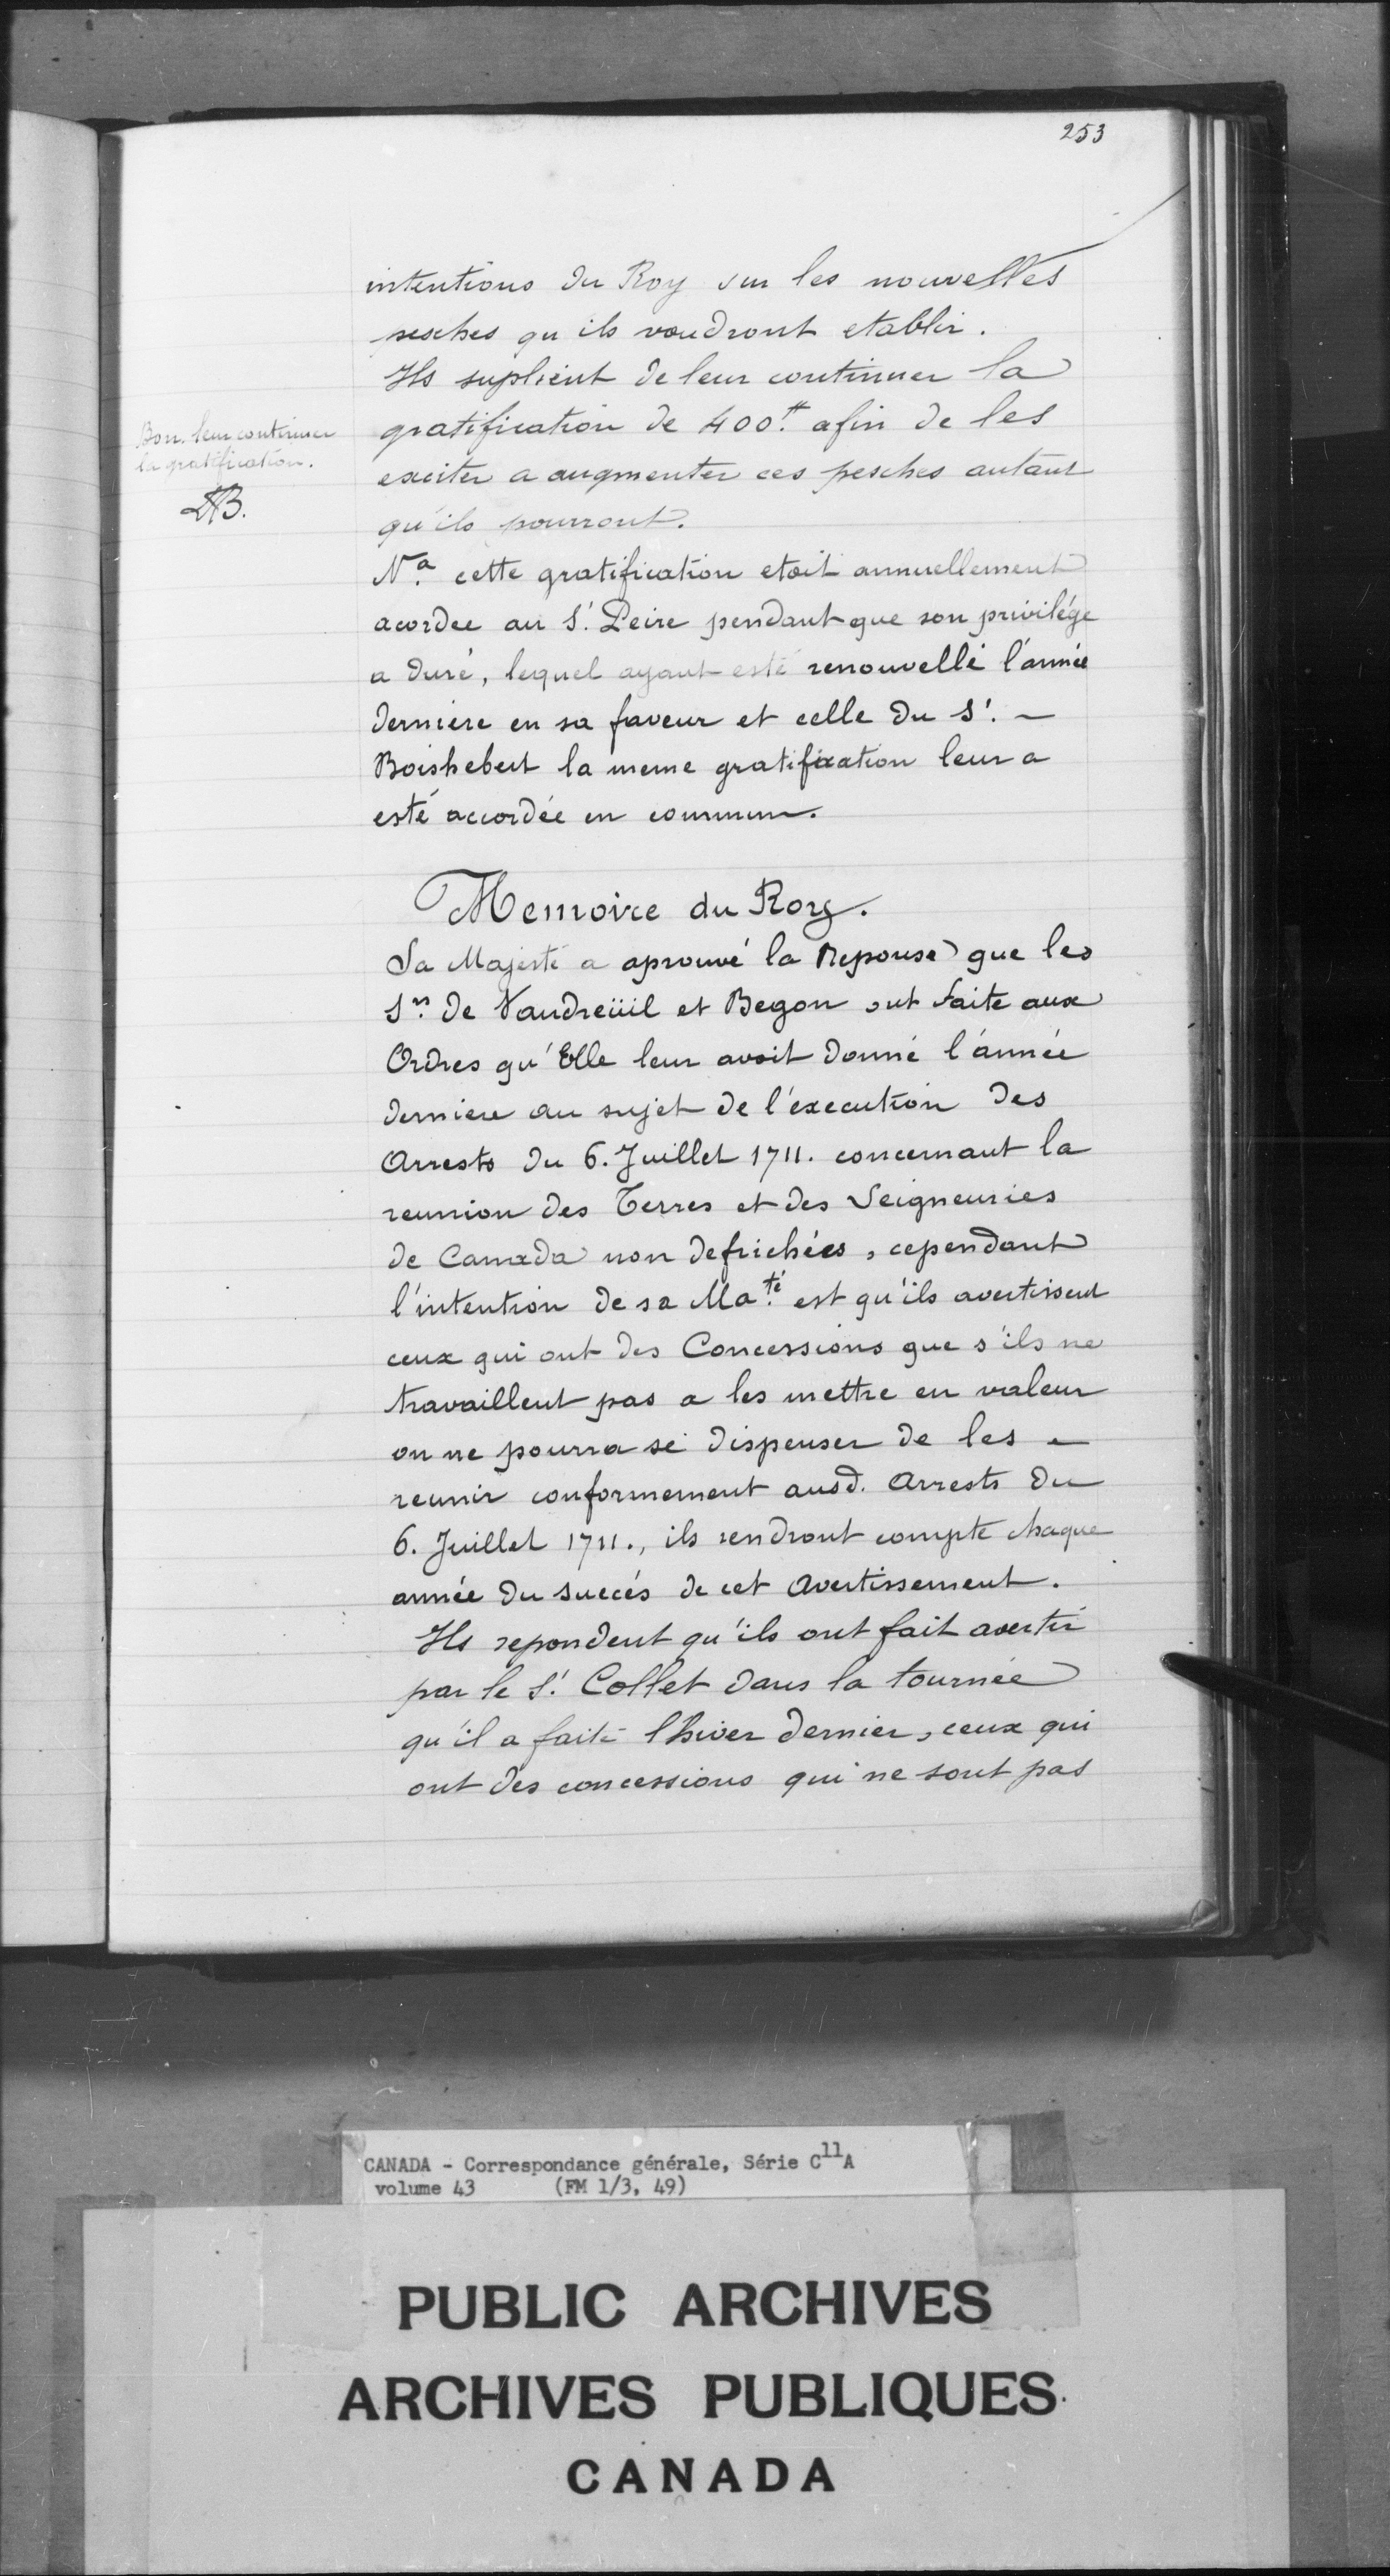 253
intentions du Roy sur les nouvelles
pesches qu ils voudront etablir.
Ils suplient de leur continuer la
gratification de 400.tt afin de les
exciter a augmenter ces pesches autant
qu'ils pourront.
Bon. leur continuer
la gratification.
N.a cette gratification etoit annuellement
acordee au S.r Peire pendant que son privilége
a duré, lequel ayant esté renouvellé l'année
derniere en sa faveur et celle du S.r
Boishebert la meme gratification leur a
esté accordée en commun.
Memoire du Roy.
Sa Majesté a aprouvé la Reponse que les
S.rs de Vaudreüil et Begon ont faite aux
Ordres qu'Elle leur avoit donné l'année
derniere au sujet de l'execution des
Arrests du 6. Juillet 1711. concernant la
reunion des Terres et des Seigneuries
de Canada non defrichées, cependant
l'intention de sa Ma.té est qu'ils avertissent
ceux qui ont des Concessions que s'ils ne
travaillent pas a les mettre en valeur
on ne pourra se dispenser de les
reunir conformement ausd. Arrests du
6. Juillet 1711., ils rendront compte chaque
année du succés de cet Avertissement.
Ils repondent qu'ils ont fait avertir
par le S.r Collet dans la tournée
qu'il a faite lhiver dernier, ceux qui
ont des concessions qui ne sont pas
CANADA - Correspondance générale, Série C11A
volume 43 (FM 1/3, 49)
PUBLIC ARCHIVES
ARCHIVES PUBLIQUES
CANADA